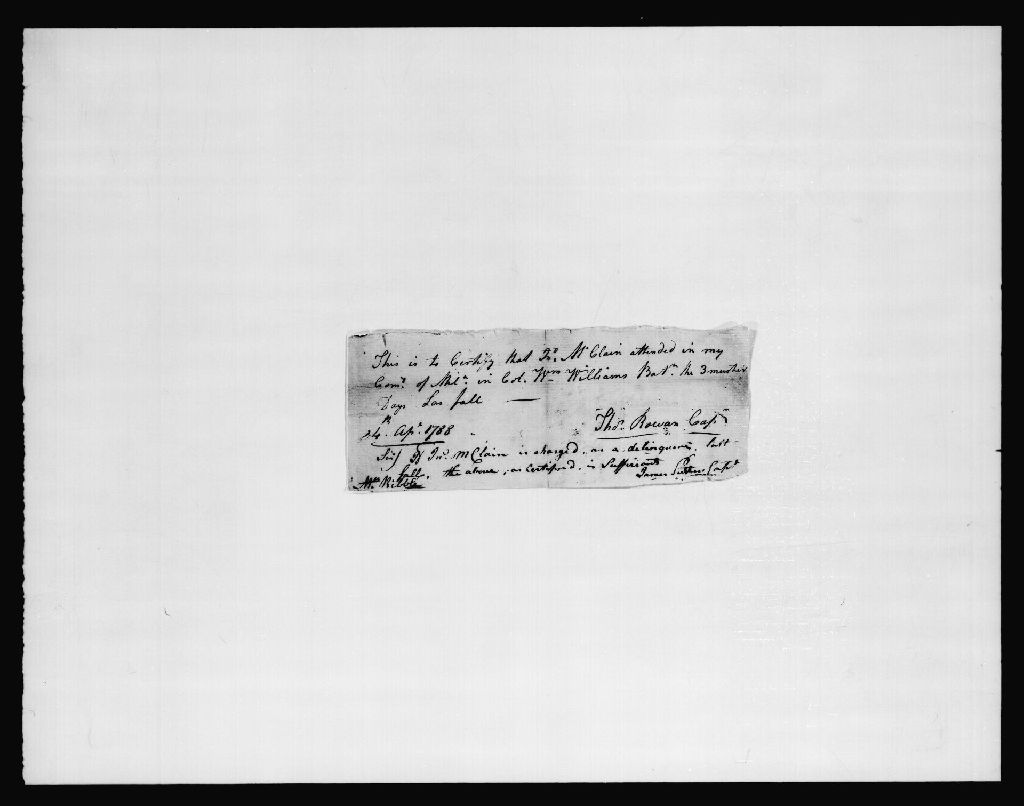 This is to Certify that Jno. McClain attended in my
Comy. of Mila. in Col. Wm Williams Batn. the 3 musters
Days Las fall —
24th. Apl. 1788 Thos. Rowan Captn
Sir, if Jno. McClain is charged, as a delinquent, last
fall, the above, as certified, is Sufficient
James Capt